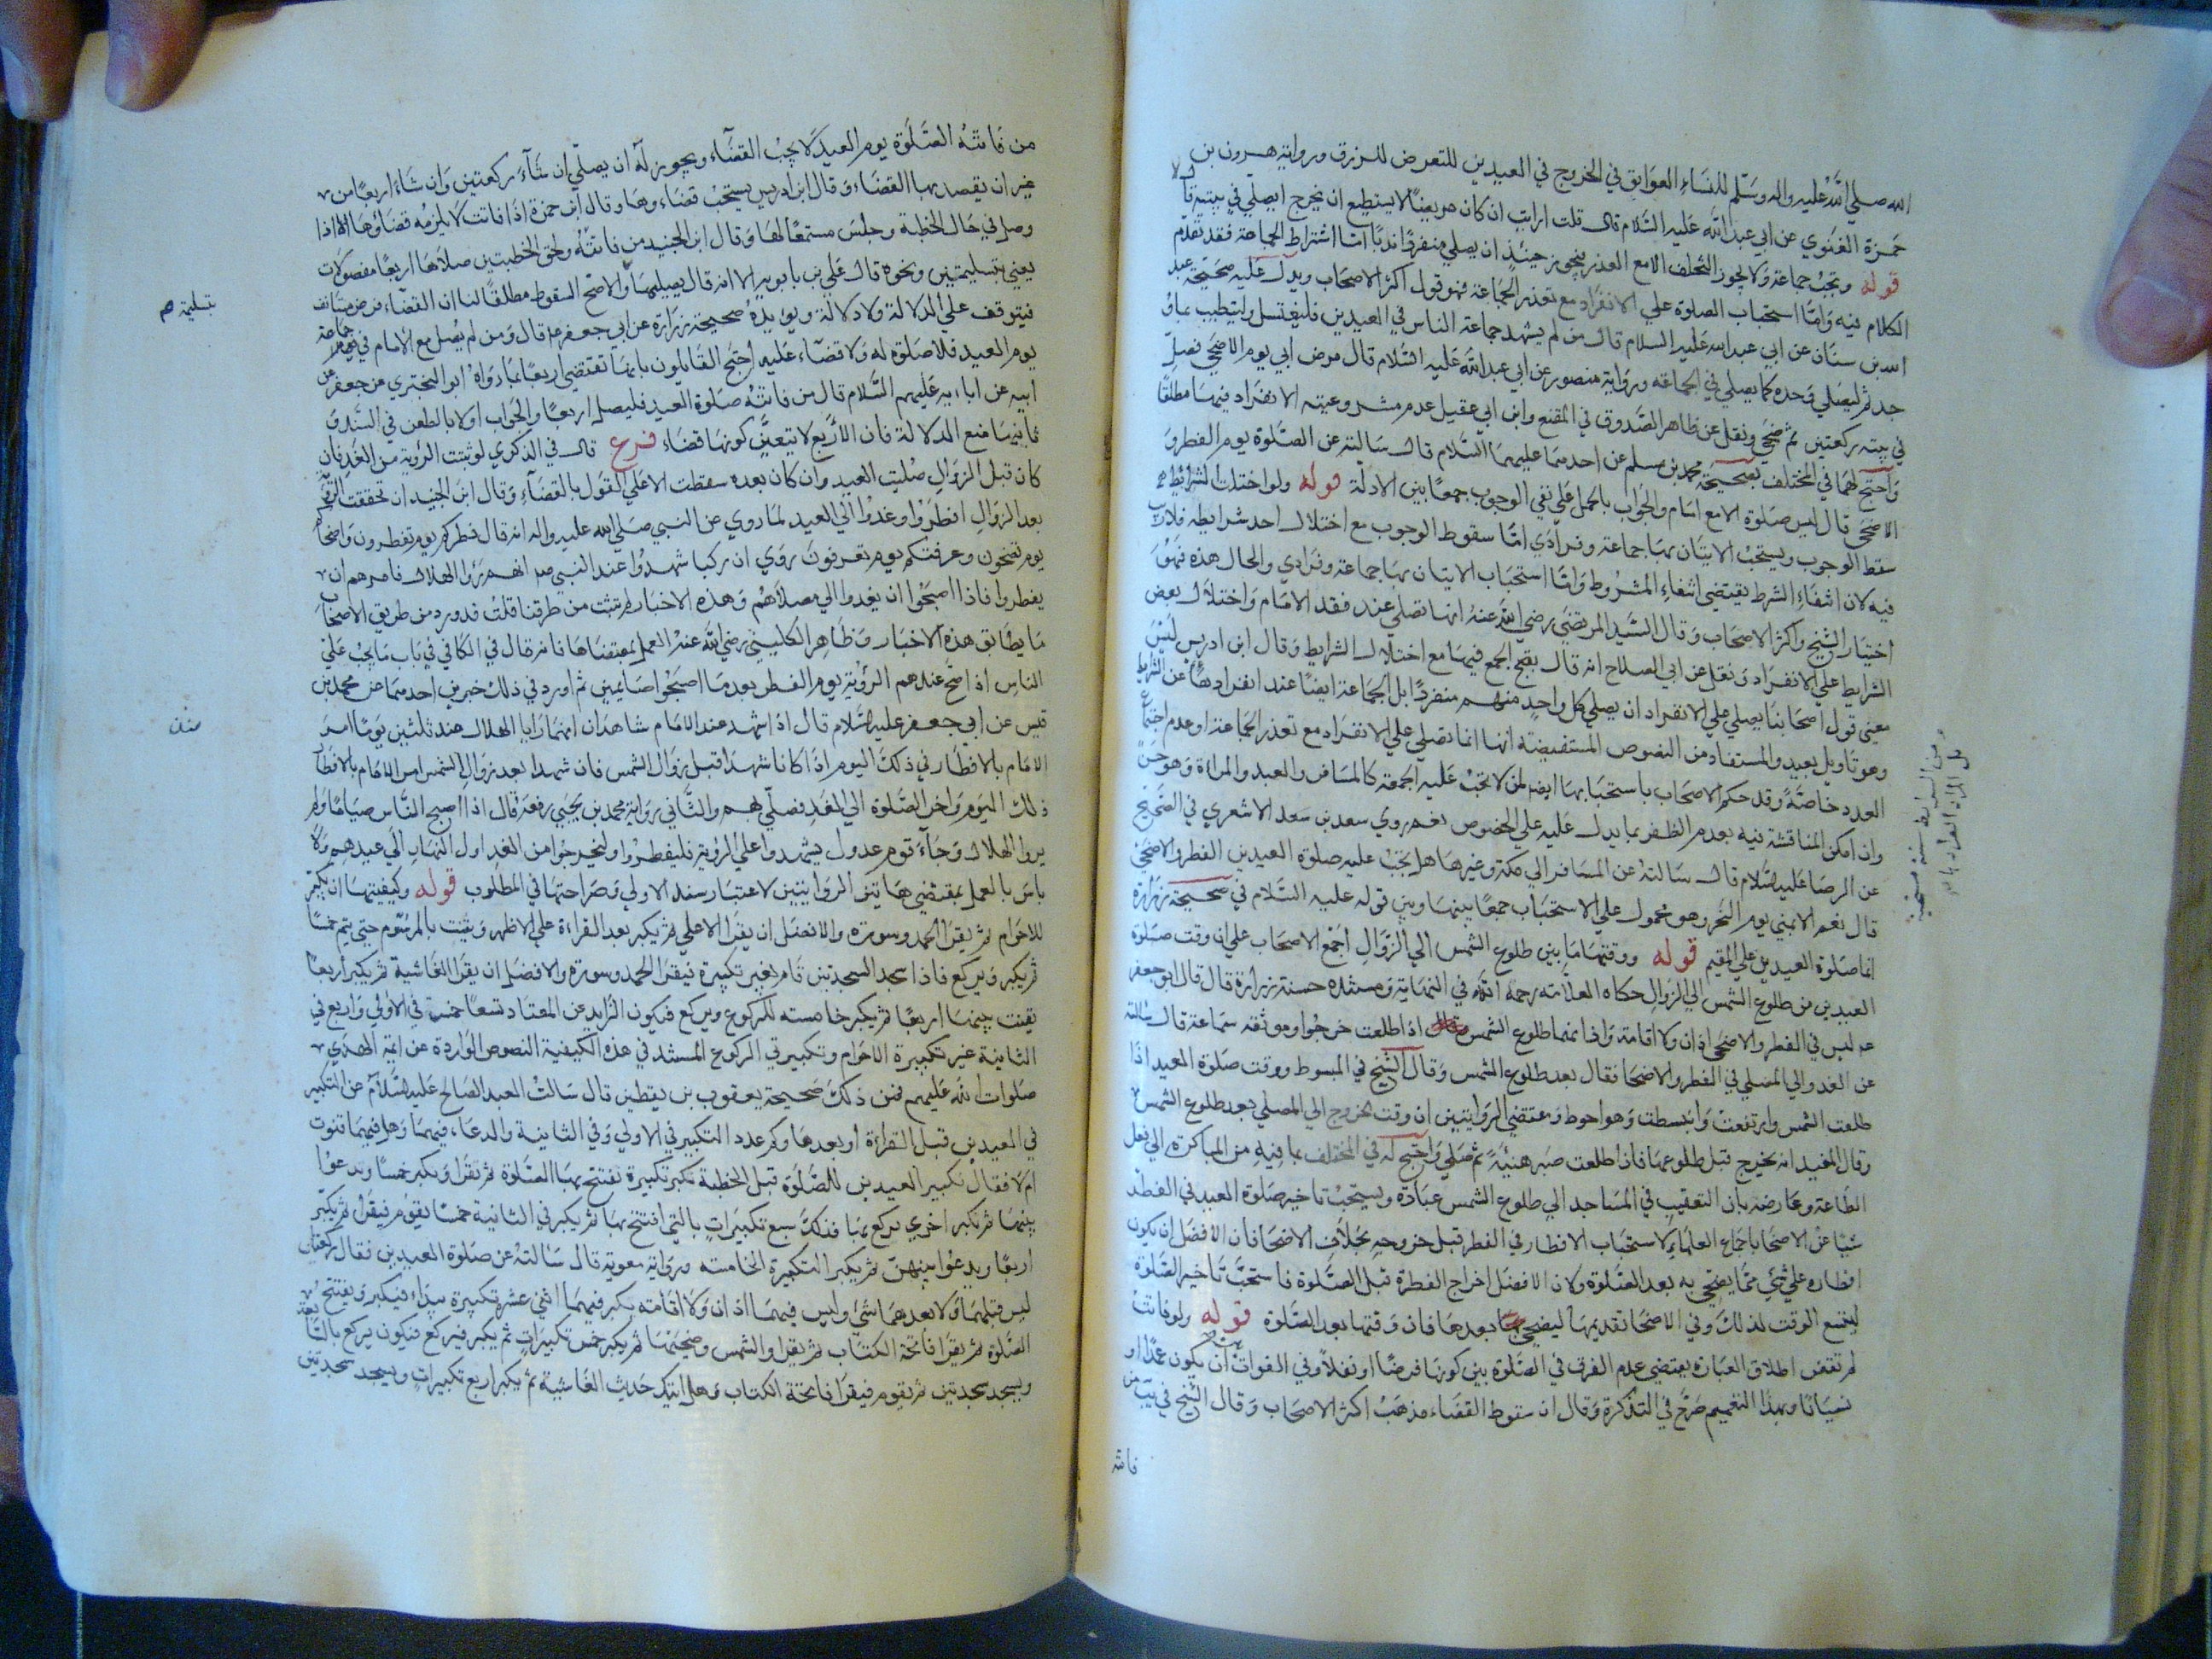 الله صلي الله عليه واله وسلم للنساء العواتق في الخروج في العيدين للتعرض للرزق ورواية هرون بن
حمزة الغنوي عن ابي عبد الله عليه السلام قال قلت ارايت ان كان مريضا لا يستطيع ان يخرج ايصلي في بيته قال لا
قوله وتجب جماعة ولا يجوز التخلف الا مع العذر فيجوز حينئذ ان يصلي منفردا ندبا اما اشتراط الجماعة فقد تقدم
الكلام فيه واما استحباب الصلوة علي الانفراد مع تعذر الجماعة فهو قول اكثر الاصحاب ويدل عليه صحيحة عبد
الله بن سنان عن ابي عبد الله عليه السلام قال من لم يشهد جماعة الناس في العيدين فليغتسل وليتطيب بما
وجد ثم ليصلي وحده كما يصلي في الجماعة ورواية منصور عن ابي عبد الله عليه السلام قال مرض ابي يوم الاضحي فصلي
في بيته ركعتين ثم ضحي ونقل عن ظاهر الصدوق في المقنع وابن ابي عقيل عدم مشروعيته الانفراد فيهما مطلقا
واحتج لهما في المختلف بصحيحة محمد بن مسلم عن احدهما عليهما السلام قال سالته عن الصلوة يوم الفطر و
الاضحي قال ليس صلوة الا مع امام والجواب بالحمل علي نفي الوجوب جمعا بين الادلة قوله ولو اختلت الشرائط
سقط الوجوب ويستحب الاتيان بها جماعة وفرادي اما سقوط الوجوب مع اختلال احد شرايطه فلا ريب
فيه لان انتفاء الشرط يقتضي انتفاء المشروط واما استحباب الاتيان بها جماعة وفرادي والحال هذه فهو
اختيار الشيخ واكثر الاصحاب وقال السيد المرتضي رضي الله عنه انها تصلي عند فقد الامام واختلال بعض
الشرايط علي الانفراد ونقل عن ابي الصلاح انه قال بقبح الجمع فيهما مع اختلال الشرايط وقال ابن ادريس ليس
معني قول اصحابنا يصلي علي الانفراد ان يصلي كل واحد منهم منفردا بل الجماعة ايضا عند انفرادها عن الشرايط
وهو تاويل بعيد والمستفاد من النصوص المستفيضة انها انما تصلي علي الانفراد مع تعذر الجماعة او عدم اجتماع
العدد خاصة وقد حكم الاصحاب باستحبابها ايضا لمن لا تجب عليه الجمعة كالمسافر والعبد والمراة وهو حسن
وان امكن المناقشة فيه بعدم الظفر بما يدل عليه علي الخصوص نعم روي سعد بن سعد الاشعري في الصحيح
عن الرضا عليه السلام قال سالته عن المسافر الي مكة وغيرها هل يجب عليه صلوة العيدين الفطر والاضحي
قال نعم الا بمني يوم النحر وهو محمول علي الاستحباب جمعا بينهما وبين قوله عليه السلام في صحيحة زرارة
انما صلوة العيدين علي المقيم قوله ووقتها ما بين طلوع الشمس الي الزوال اجمع الاصحاب علي ان وقت صلوة
العيدين من طلوع الشمس الي الزوال حكاه العلامة رحمه الله في النهاية ومستنده حسنة زرارة قال قال ابو جعفر
عه ليس في الفطر والاضحي اذان ولا اقامة واذانهما طلوع الشمس اذا طلعت خرجوا وموثقه سماعة قال سالته
عن الغدو الي المصلي في الفطر والاضحا فقال بعد طلوع الشمس وقال الشيخ في المبسوط ووقت صلوة العيد اذا
طلعت الشمس وارتفعت وانبسطت وهو احوط ومقتضي الروايتين ان وقت الخروج الي المصلي بعد طلوع الشمس
وقال المفيد انه يخرج قبل طلوعها فاذا طلعت صبر هنيئة ثم صلي واحتج له في المختلف بما فيه من المباكرة الي فعل
الطاعة وعارضه بان التعقيب في المساجد الي طلوع الشمس عبادة ويستحب تاخير صلوة العيد في الفطر
شيا عن الاضحا باجماع العلماء لاستحباب الافطار في الفطر قبل خروجه بخلاف الاضحا فان الافضل ان يكون
افطاره علي شئ مما يضحي به بعد الصلوة ولان الافضل اخراج الفطرة قبل الصلوة فاستحب تاخير الصلوة
ليتسع الوقت لذلك وفي الاضحا تقديمها ليضحي بعدها فان وقتها بعد الصلوة قوله ولو فاتت
لم تقض اطلاق العبارة يقتضي عدم الفرق في الصلوة بين كونها فرضا او نفلا وفي الفوات بين ان يكون عمدا او
نسيانا وبهذا التعميم صرح في التذكرة وقال ان سقوط القضاء مذهب اكثر الاصحاب وقال الشيخ في يب من
فاته
من فاتته الصلوة يوم العيد لا يجب القضاء ويجوز له ان يصلي ان شاء ركعتين وان شاء اربعا من
غير ان يقصد بها القضاء وقال ابن ادريس يستحب قضاءوها وقال ابن حمزة اذا فاتت لا يلزمه قضاؤها الا اذا
وصل في حال الخطبة وجلس مستمعا لها وقال ابن الجنيد من فاتته ولحق الخطبتين صلاها اربعا مفصولات
يعني بتسليمتين ونحوه قال علي بن بابويه الا انه قال يصليها والاصح السقوط مطلقا لنا ان القضاء فرض مستانف
بتسليمة صح
فيتوقف علي الدلالة ولا دلالة ويؤيده صحيحة زرارة عن ابي جعفر عه قال ومن لم يصل مع الامام في جماعة
يوم العيد فلا صلوة له ولا قضاء عليه احتج القايلون بانها تقتضي اربعا بما رواه ابو البختري عن جعفر عن
ابيه عن اباءيه عليهم السلام قال من فاتته صلوة العيد فليصل اربعا والجواب اولا بالطعن في السند و
ثانيا منع الدلالة فان الاربع لا يتعين كونها قضاء فرع قال في الذكري لو ثبتت الرؤية من الغد فان
كان قبل الزوال صليت العيد وان كان بعده سقطت الا علي القول بالقضاء وقال ابن الجنيد ان تحققت الرؤية
بعد الزوال افطروا وغدوا الي العيد لما روي عن النبي صلي الله عليه واله انه قال فطركم يوم تفطرون واضحاكم
يوم تضحون وعرفتكم يوم تعرفون وروي ان ركبا شهدوا عند النبي صه انهم راوا الهلال فامرهم ان
يفطروا فاذا اصبحوا ان يغدوا الي مصلاهم وهذه الاخبار لم تثبت من طرقنا قلت قد ورد من طريق الاصحاب
ما يطابق هذه الاخبار وظاهر الكليني رضي الله عنه العمل بمقتضاها فانه قال في الكافي في باب ما يجب علي
الناس اذا صح عندهم الرؤية يوم الفطر بعد ما اصبحوا صايمين ثم اورد في ذلك خبرين احدهما عن محمد بن
قيس عن ابي جعفر عليه السلام قال اذا شهد عند الامام شاهدان انهما رايا الهلال منذ ثلثين يوما امر
الامام بالافطار في ذلك اليوم اذا كانا شهدا قبل زوال الشمس فان شهدا بعد زوال الشمس امر الامام بالافطار
ذلك اليوم واخر الصلوة الي الغد فصلي بهم والثاني رواية محمد بن يحيي رفعه قال اذا اصبح الناس صياما ولم
يروا الهلال وجاء قوم عدول يشهدوا علي الرؤية فليفطروا وليخرجوا من الغد اول النهار الي عيدهم ولا
باس بالعمل بمقتضي هاتين الروايتين لاعتبار سند الاولي وصراحتها في المطلوب قوله وكيفيتها ان يكبر
للاحرام ثم يقرا الحمد وسورة والافضل ان يقرا الاعلي ثم يكبر بعد القراءة علي الاظهر ويقنت بالمرسوم حتي يتم خمسا
ثم يكبر ويركع فاذا سجد السجدتين قام بغير تكبيرة فيقرا الحمد وسورة والافضل ان يقرا الغاشية ثم يكبر اربعا
يقنت بينها اربعا ثم يكبر خامسه للركوع ويركع فيكون الزايد عن المعتاد تسعا خمس في الاولي واربع في
الثانية غير تكبيرة الاحرام وتكبيرتي الركوع المستند في هذه الكيفية النصوص الواردة عن ائمة الهدي
صلوات الله عليهم فمن ذلك صحيحة يعقوب بن يقطين قال سالت العبد الصالح عليه السلام عن التكبير
في العيدين قبل القراءة او بعدها وكم عدد التكبير في الاولي وفي الثانية والدعاء فيهما وهل فيهما قنوت
ام لا فقال تكبير العيدين للصلوة قبل الخطبة تكبر تكبيرة تفتتح بها الصلوة ثم تقرا وتكبر خمسا وتدعوا
بينها ثم تكبر اخري يركع بها فذلك سبع تكبيرات بالتي افتتح بها ثم يكبر في الثانية خمسا يقوم فيقرا ثم يكبر
اربعا ويدعوا بينهن ثم يكبر التكبيرة الخامسه ورواية معوية قال سالته عن صلوة العيدين فقال ركعتان
ليس قبلهما ولا بعدهما شئ وليس فيهما اذان ولا اقامه تكبر فيهما اثني عشرة تكبيرة يبداء فيكبر ويفتتح
الصلوة ثم يقرا فاتحة الكتاب ثم يقرا والشمس وضحيها ثم يكبر خمس تكبيرات ثم يكبر فيركع فيكون يركع بالسابعة
ويسجد سجدتين ثم يقوم فيقرا فاتحة الكتاب وهل اتيك حديث الغاشية ثم يكبر اربع تكبيرات ويسجد سجدتين